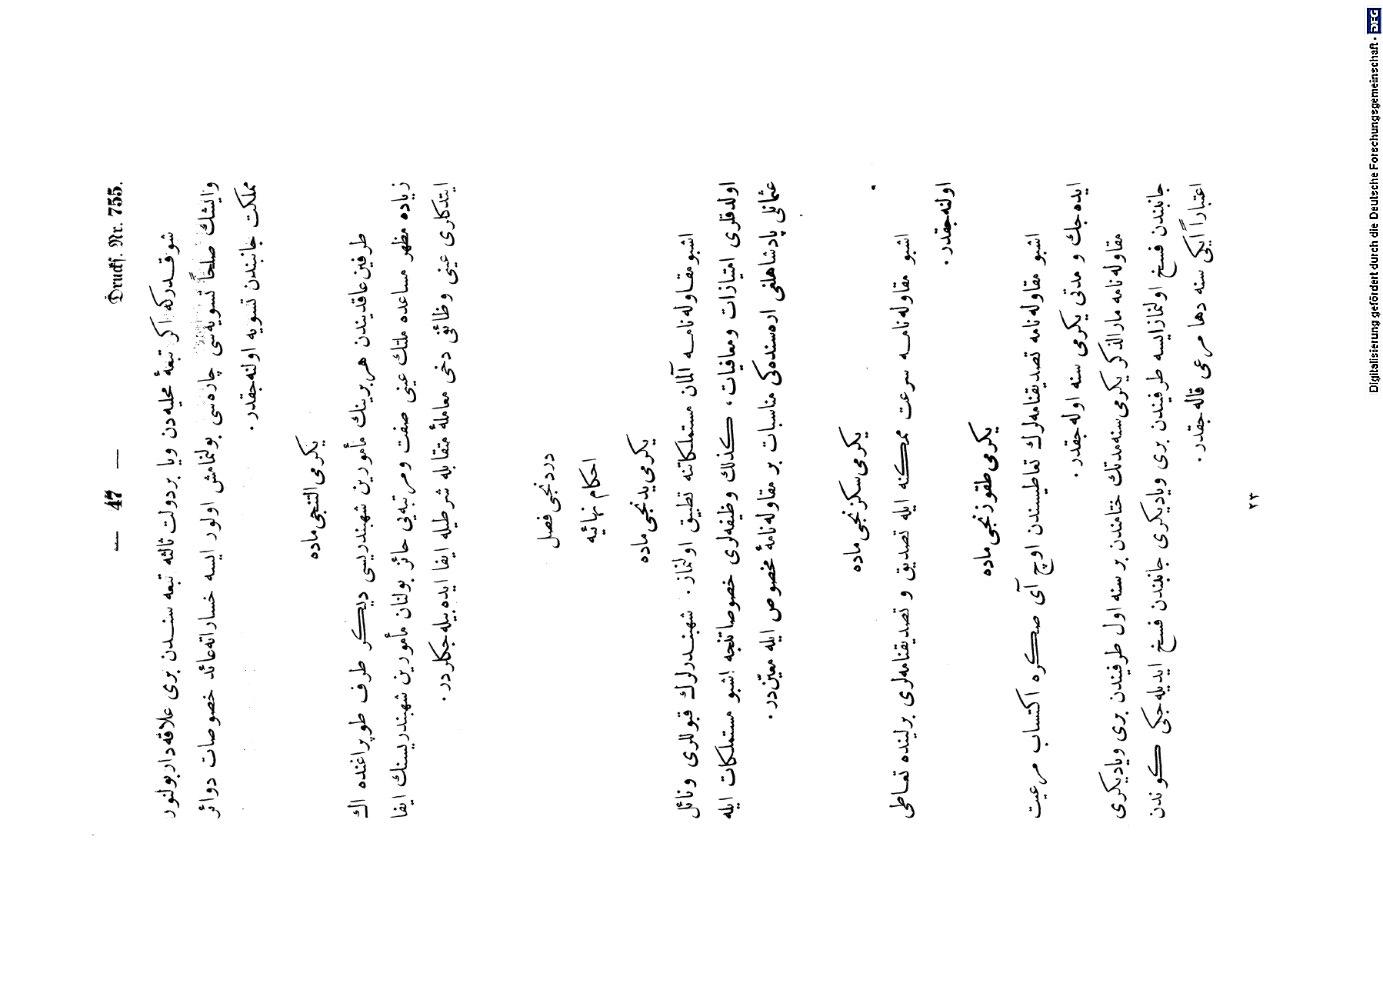 — 47 —
Drucks. Nr. 755.
شو قدركه اكر تبعهٔ محليه‌دن ويا بر دولت ثالثه تبعه سندن برى علاقه‌دار بولنور
واليشك صلحاً تسويه‌سى چاره‌سى بولنمامش اولور ايسه خساراته عائد خصوصات دوائر
مملكت جانبندن تسويه اولنه‌جقدر.
يكرمى التنجى ماده
طرفين عاقديندن هر برينك مأمورين شهبندريسى ديكر طرف طوپراغنده اك
زياده مظهر مساعده ملتك عينى صفت ومرتبه‌يى حائز بولنان مأمورين شهبندريسنك ايفا
ايتدكلرى عينى وظائفى دخى معاملهٔ متقابله شرطيله ايفا ايده بيله‌جكلردر.
دردنجى فصل
احكام نهائيه
يكرمى يدنجى ماده
اشبو مقاوله‌نامه آلمان مستملكاتنه تطبيق اولنماز. شهبندرلرك قبوللرى ونائل
اولدقلرى امتيازات ومعافيات، كذلك وظيفه‌لرى خصوصاتنجه اشبو مستملكات ايله
عثمانلى پادشاهلغى اره‌سنده‌كى مناسبات بر مقاوله‌نامهٔ مخصوص ايله معيندر.
يكرمى سكزنجى ماده
اشبو مقاوله‌نامه سرعت ممكنه ايله تصديق و تصديقنامه‌لرى برلينده تعاطى
اولنه‌جقدر.
يكرمى طقوزنجى ماده
اشبو مقاوله‌نامه تصديقنامه‌لرك تعاطيسندن اوچ آى صكره اكتساب مرعيت
ايده‌جك و مدتى يكرمى سنه اوله‌جقدر.
مقاوله‌نامه مارالذكر يكرمى سنه مدتك ختامندن بر سنه اول طرفيندن برى وياديكرى
جانبندن فسخ اولنماز ايسه طرفيندن برى وياديكرى جانبندن فسخ ايديله‌جكى كوندن
اعتباراً ايكى سنه دها مرعى قاله‌جقدر.
٢٣
Digitalisierung gefördert durch die Deutsche Forschungsgemeinschaft - DFG